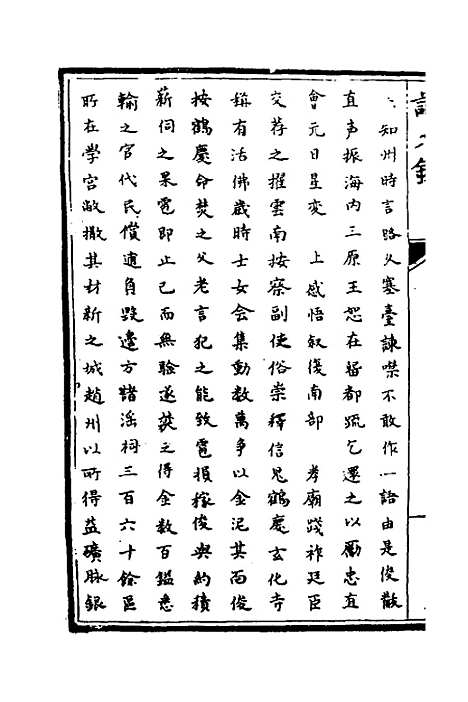 知州時言路久塞臺諫噤不敢作一語由是俊散
直声振海内三原王恕在畱都疏乞還之以勵忠直
會元日星变　上感悟叙復南部　孝廟踐祚廷臣
交荐之擢雲南按察副使俗崇釋信鬼鶴慶玄化寺
稱有活佛歲時士女會集動数萬争以金泥其面俊
按鶴慶命焚之父老言犯之能致雹損稼俊与約積
薪伺之果雹即止已而無驗遂焚之得金数百鎰悉
輸之官代民償逋負毁邊方諸淫祠三百六十餘區
所在學宫敝撤其材新之城趙州以所得益礦脉銀